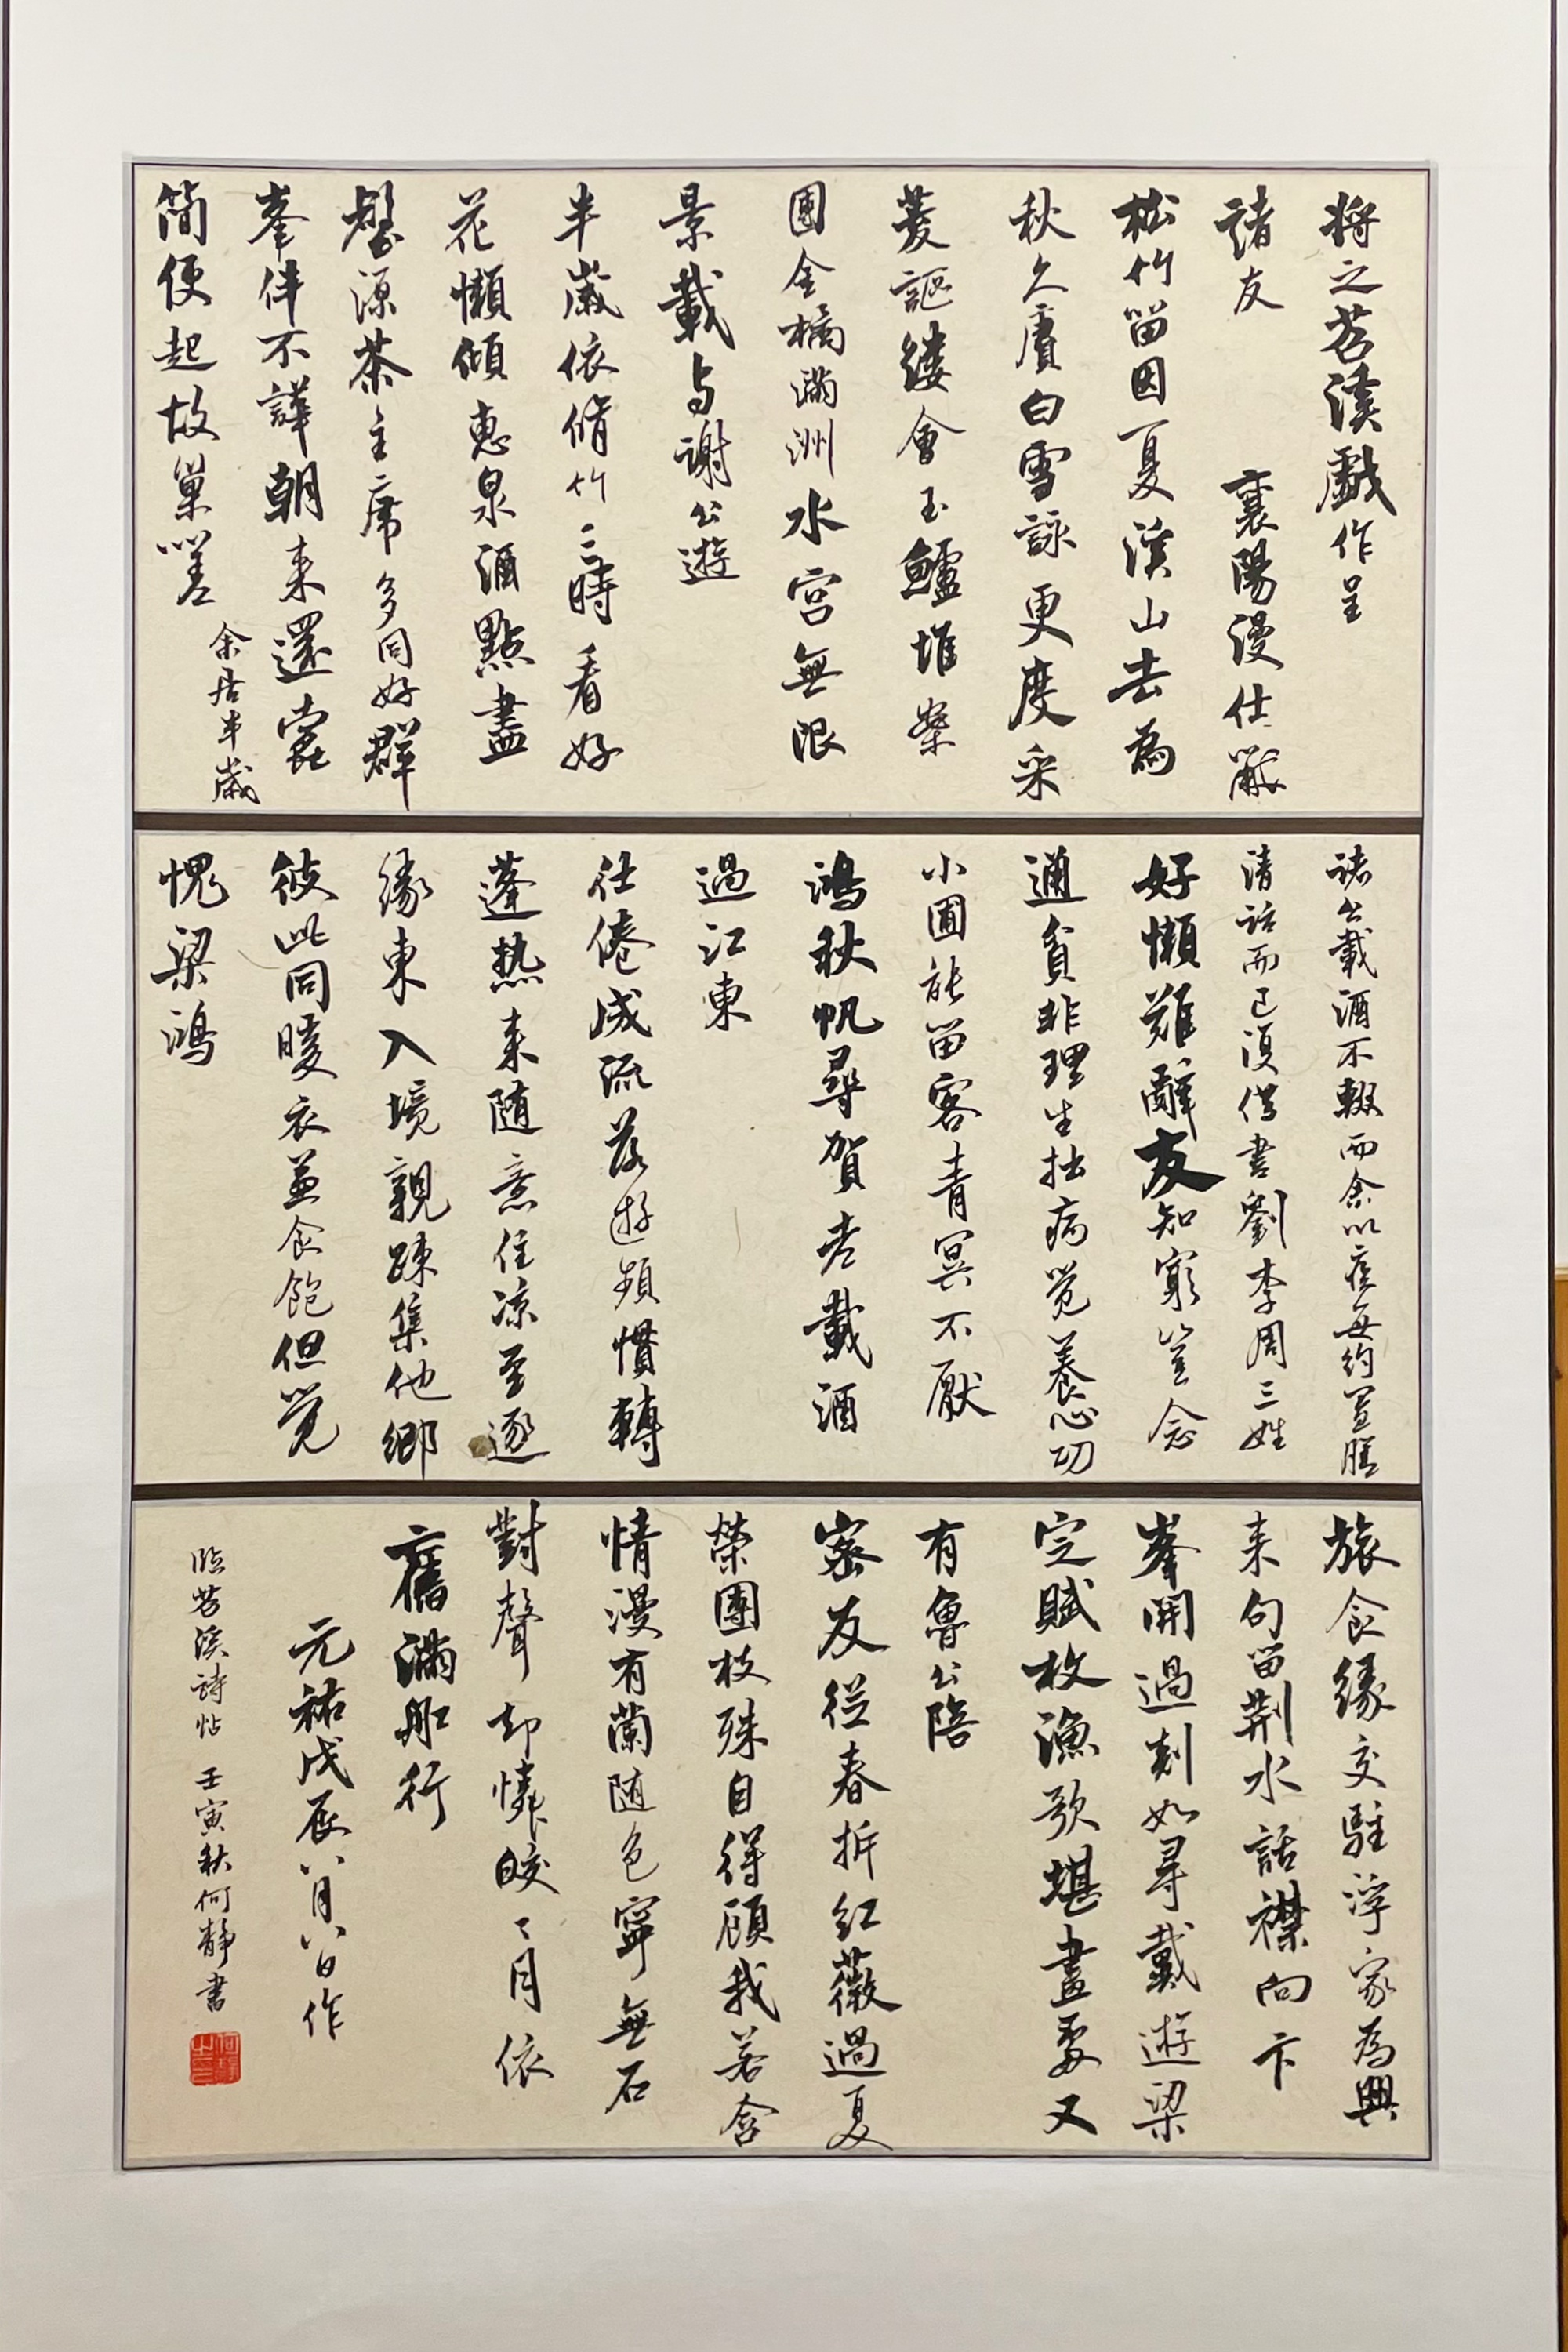 将之苕溪戲作呈
諸友 襄陽漫仕黻
松竹留因夏溪山去為
秋久賡白雪詠更度采
菱謳縷會玉鱸堆案
團金橘滿洲水宮無限
景載与謝公遊
半歲依脩竹三時看好
花懶傾惠泉酒點盡
壑源茶主席多同好群
峯伴不譁朝来還蠹
簡便起故巢嗟
余居半歲
諸公載酒不輟而余以疾每約置膳
清話而已復借書劉李周三姓
好懶難辭友知窮豈念
通貧非理生拙病覺養心功
小圃能留客青冥不厭
鴻秋帆尋賀老載酒
過江東
仕倦成流落遊頻慣轉
蓬热来随意住凉至逐
緣東入境親踈集他鄉
彼此同暖衣兼食飽但覺
愧梁鴻
旅食緣交駐浮家為興
来句留荆水話襟向卞
峯開過剡如尋戴遊梁
定賦枚漁歌堪畫處又
有魯公陪
密友從春拆紅薇過夏
榮團枝殊自得顧我若含
情漫有蘭随色寧無石
對聲却憐皎〻月依
舊滿舡行
元祐戊辰八月八日作
臨苕溪詩帖 壬寅秋何静書